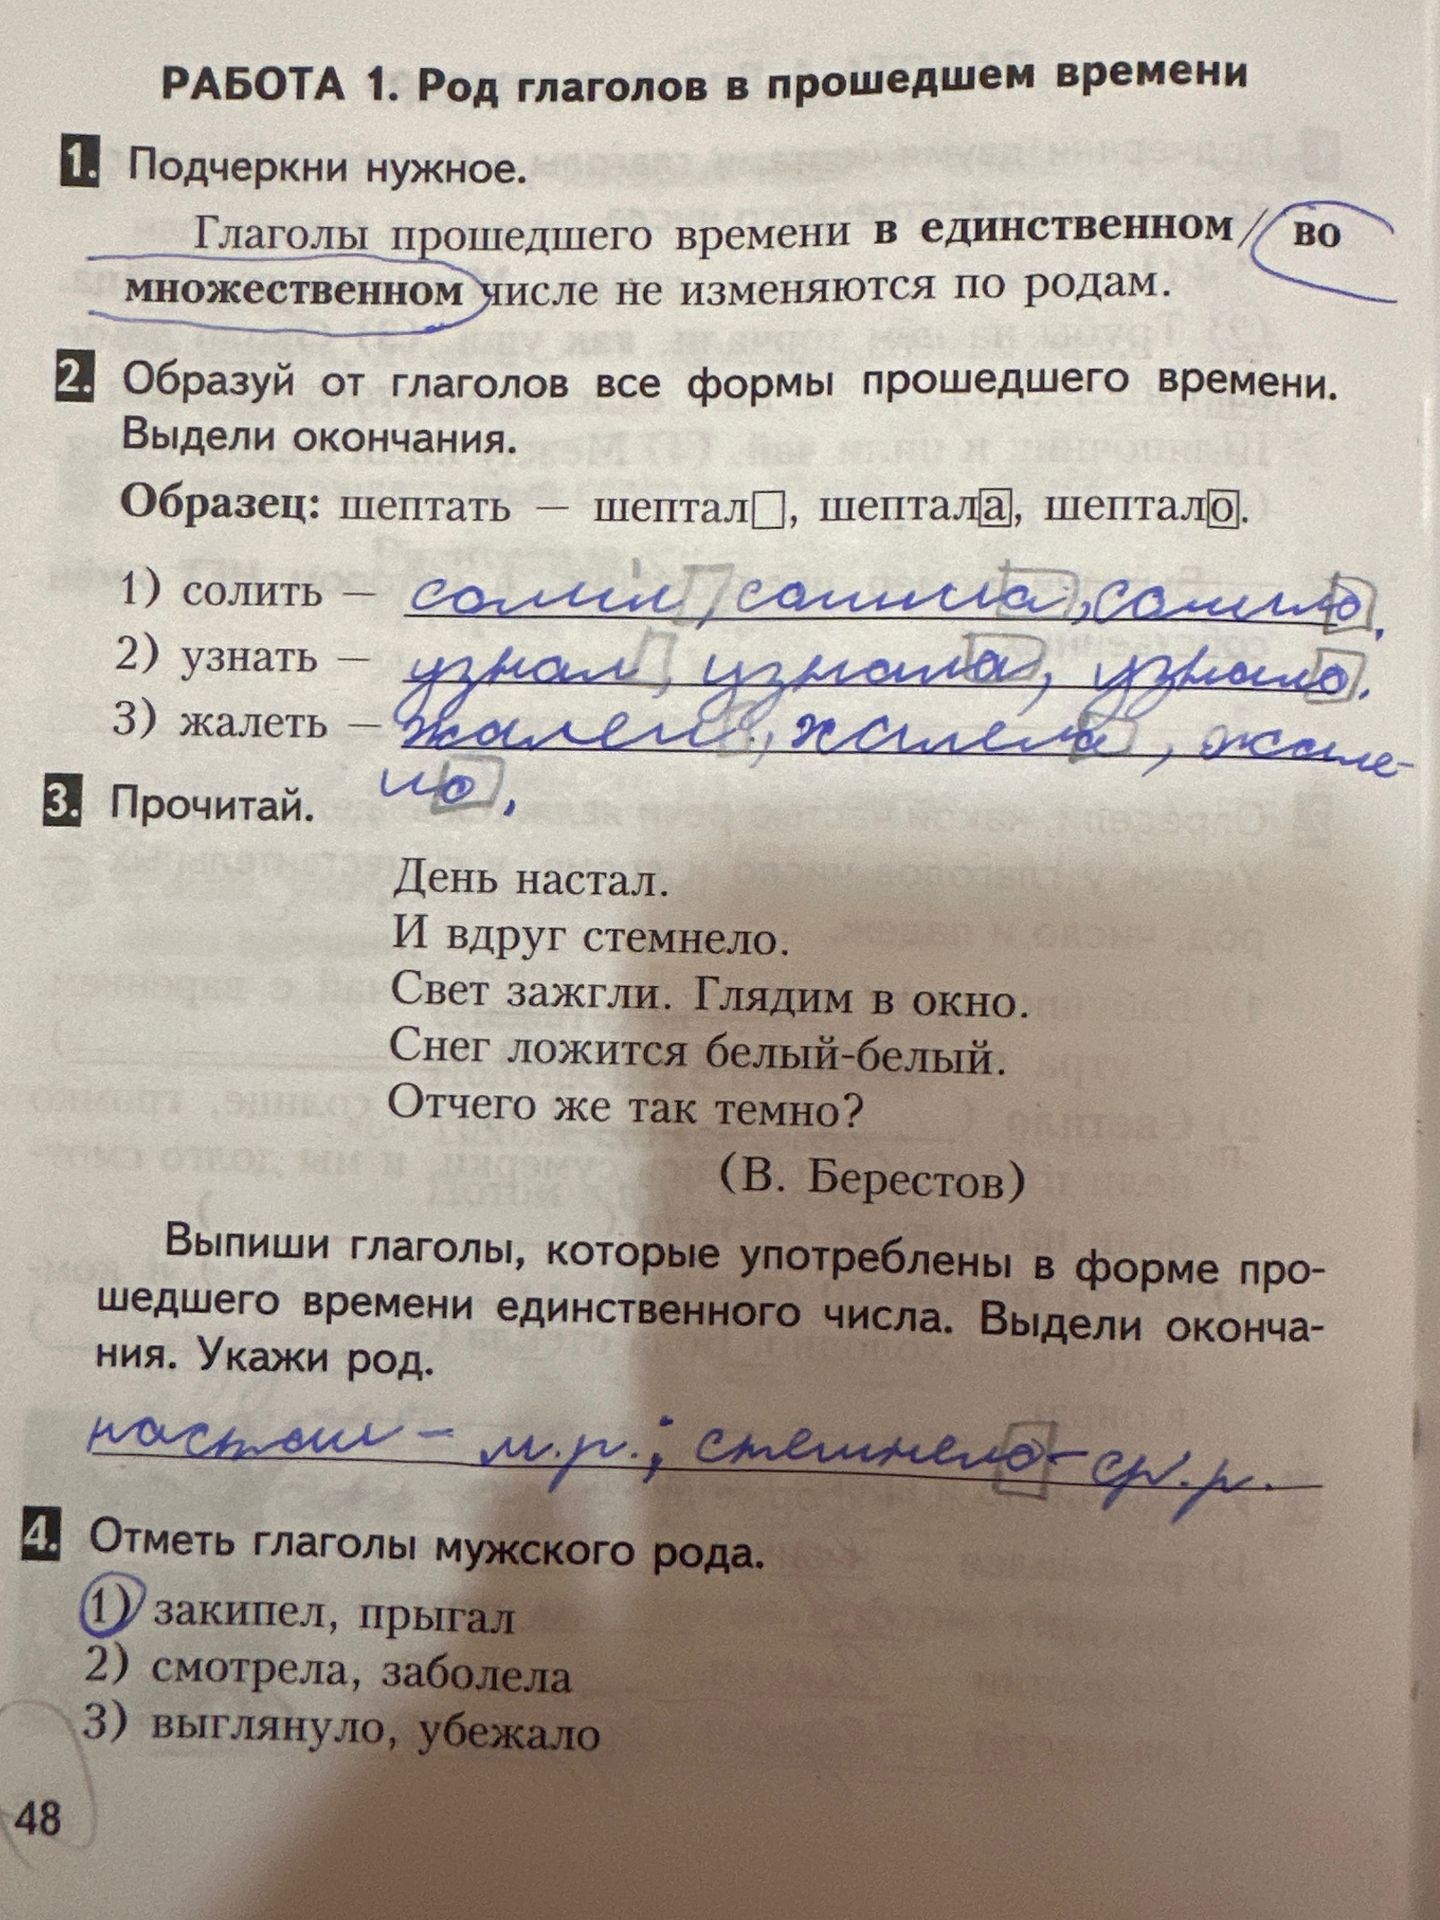 РАБОТА 1. Род глаголов в прошедшем времени
1. Подчеркни нужное.
Глаголы прошедшего времени в единственном/ во
множественном числе не изменяются по родам.
2. Образуй от глаголов все формы прошедшего времени.
Выдели окончания.
Образец: шептать — шептал□, шептала, шептало.
1) солить — солил, солила, солило.
2) узнать — узнал, узнала, узнало.
3) жалеть — жалел, жалела, жале-
ло.
3. Прочитай.
День настал.
И вдруг стемнело.
Свет зажгли. Глядим в окно.
Снег ложится белый-белый.
Отчего же так темно?
(В. Берестов)
Выпиши глаголы, которые употреблены в форме про-
шедшего времени единственного числа. Выдели оконча-
ния. Укажи род.
настал – м.р.; стемнело – ср.р.
4. Отметь глаголы мужского рода.
1) закипел, прыгал
2) смотрела, заболела
3) выглянуло, убежало
48